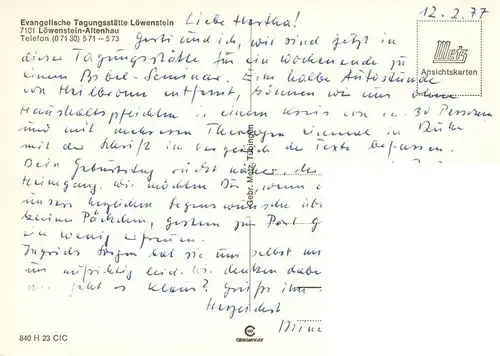 Evangelische Tagungsstätte Löwenstein
7101 Löwenstein-Altenhau
Telefon (07130) 571-573
12.2.77
Metz
Ansichtskarten
Liebe Hertha!
und ich, wir sind jetzt in
dieser Tagungsstätte für ein Wochenende zu
einem Bibel-Seminar. Eine halbe Autostunde
von Heilbronn entfernt, können wir uns ohne
Haushaltspflichten in einem Kreis von ca. 30 Personen
und mit mehreren Theologen einmal in Ruhe
mit der Schrift im Vergleich der Texte befassen.
Dein Geburtstag rückt näher, der
Heimgang. Wir möchten Dir, wenn
unsere herzlichen Segenswünsche
kleine Päckchen, gestern zur Post
ein wenig erfreuen.
Ingrids Sorgen hat sie uns selbst
uns aufrichtig leid. Wir denken
geht es Klaus? Grüße
Herzlichst
Gebr. Metz, Tübingen
840 H 23 CIC